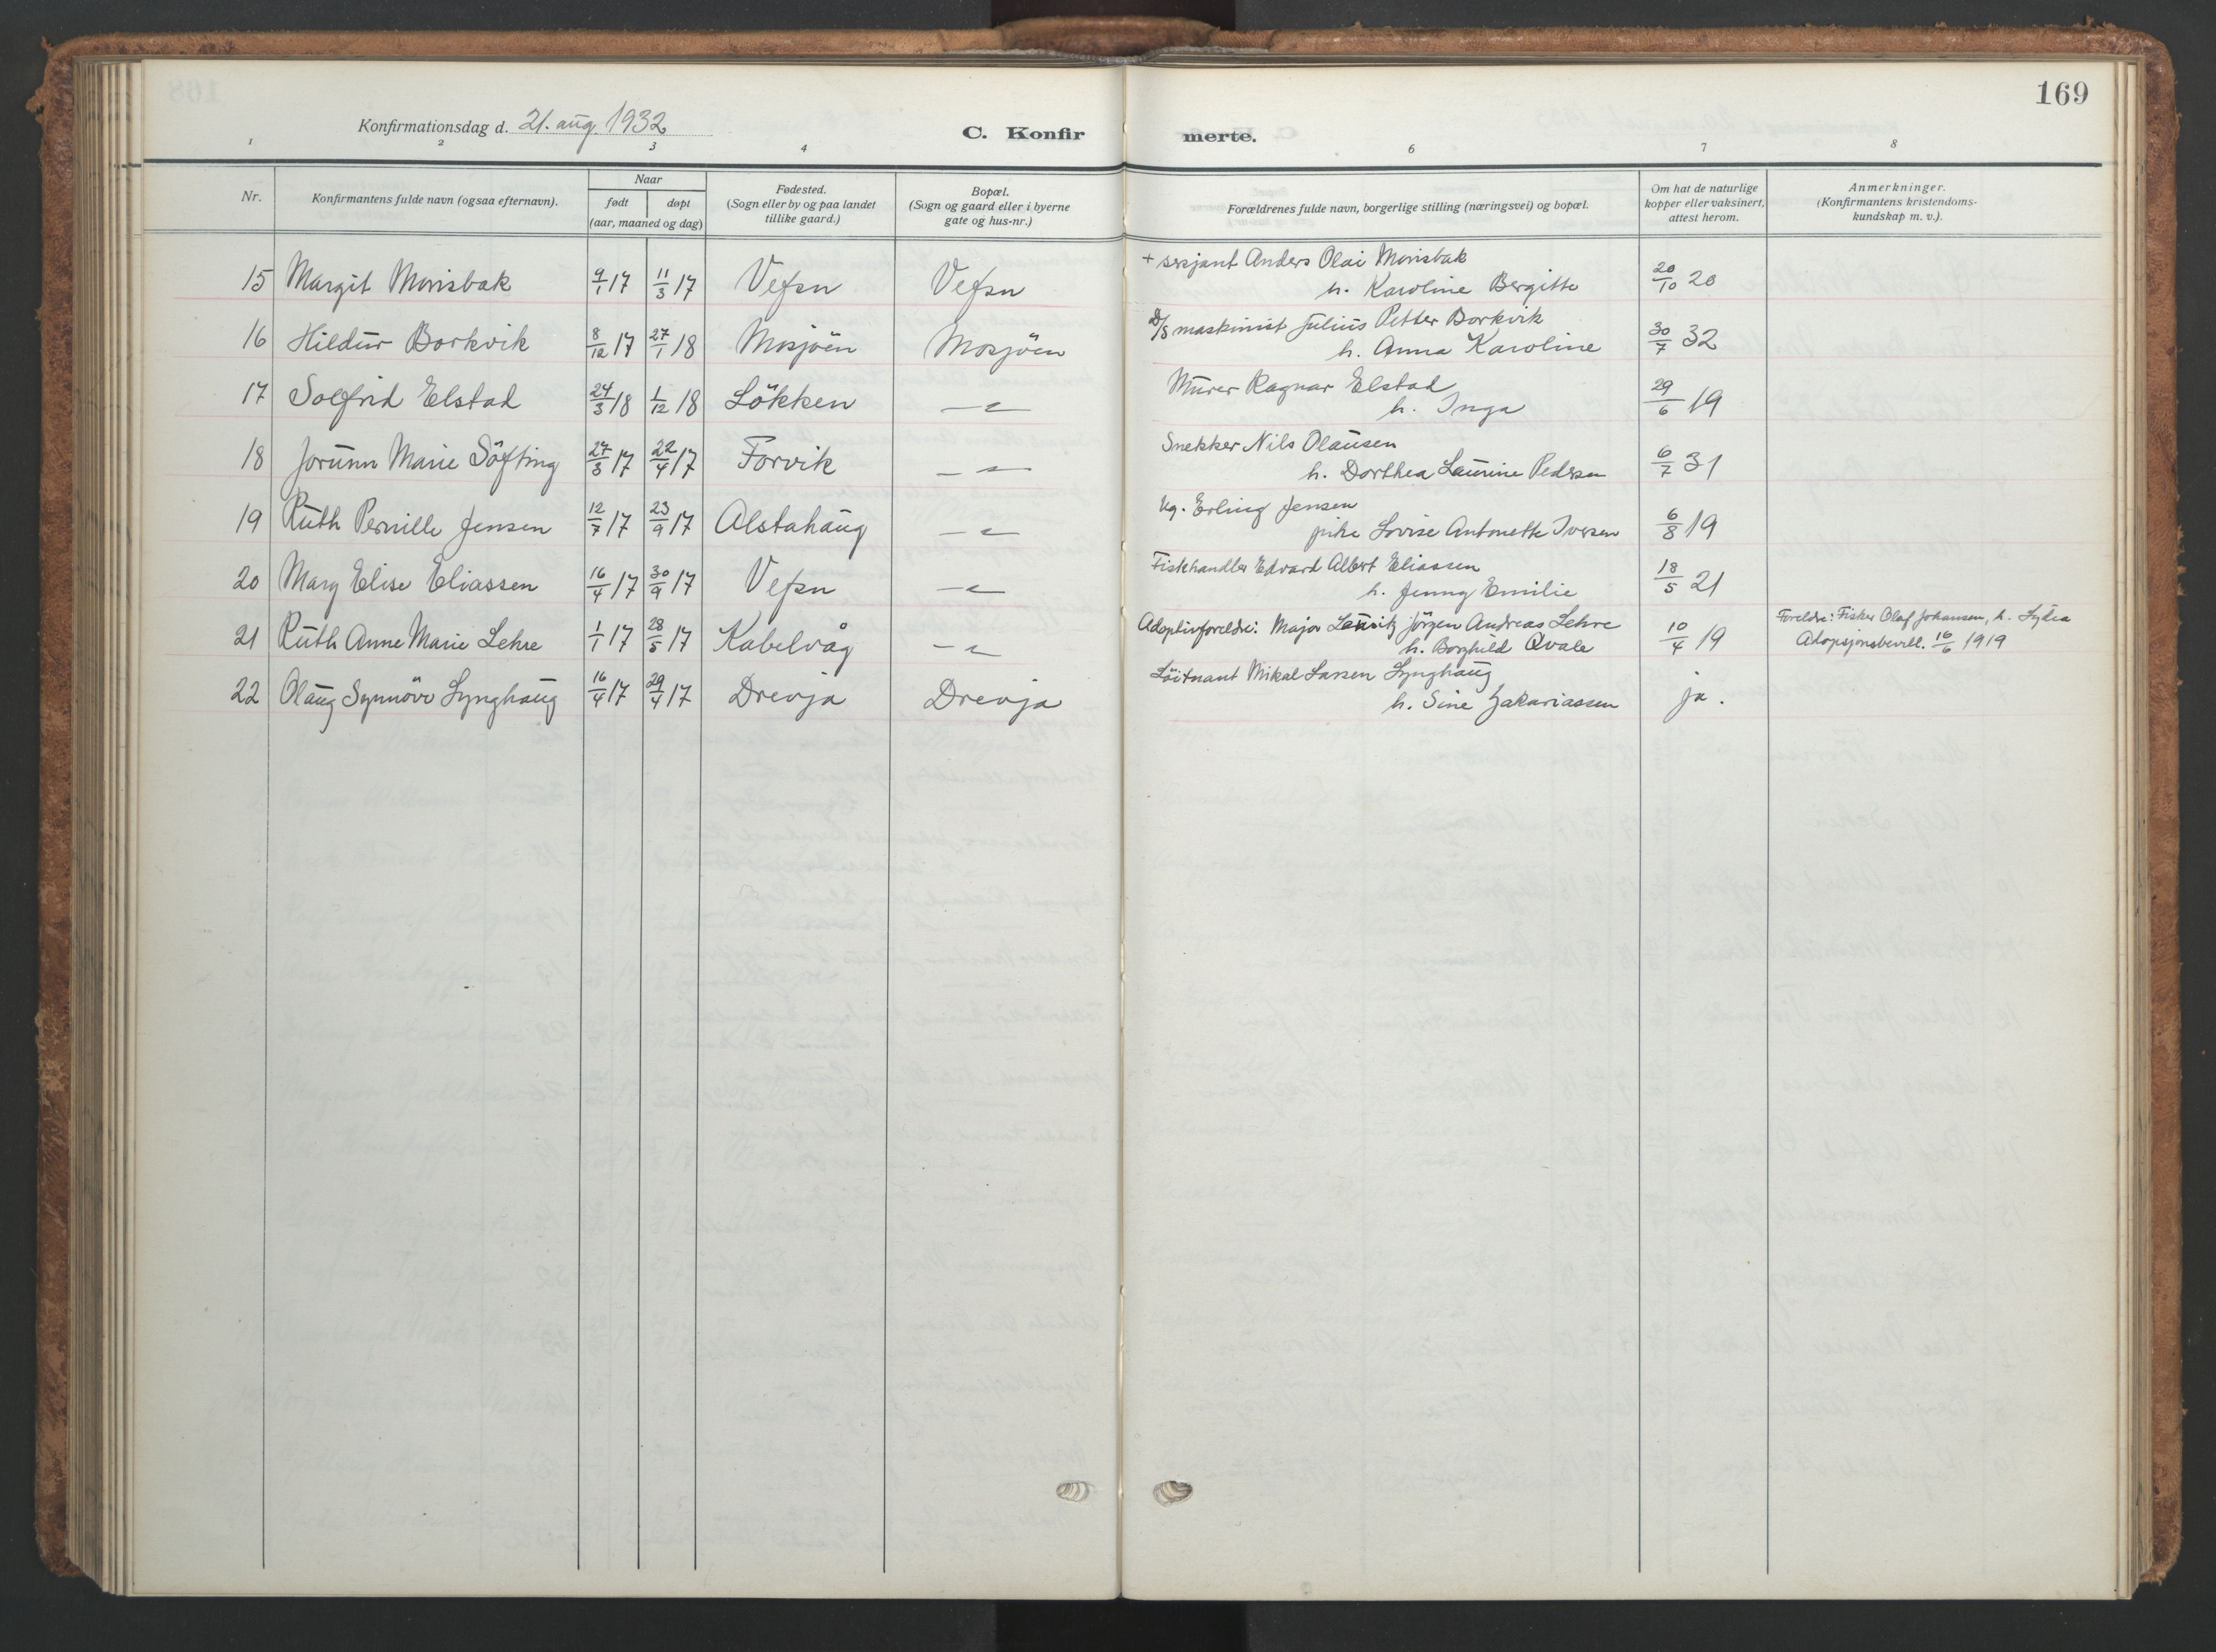 169
Konfirmationsdag d. 21. aug. 1932
C. Konfirmerte.
1 2 3 4 6 7 8
Nr.
Konfirmantens fulde navn (ogsaa efternavn).
Naar
født døpt
(aar, maaned og dag)
Fødested.
(Sogn eller by og paa landet
tillike gaard.)
Bopæl.
(Sogn og gaard eller i byerne
gate og hus-nr.)
Forældrenes fulde navn, borgerlige stilling (næringsvei) og bopæl.
Om hat de naturlige
kopper eller vaksinert,
attest herom.
Anmerkninger.
(Konfirmantens kristendoms-
kundskap m. v.).
+ sersjant Anders Olai Monsbak
15 Margit Monsbak 9/1 17 11/3 17 Vefsn Vefsn h. Karoline Bergitte 20/10 20
D/S maskinist Julius Petter Borkvik
16 Hildur Borkvik 8/12 17 27/1 18 Mosjöen Mosjöen h. Anna Karoline 30/7 32
Murer Ragnar Elstad
17 Solfrid Elstad 24/3 18 1/12 18 Lökken — " — h. Inga 29/6 19
Snekker Nils Olausen
18 Jorunn Marie Söfting 27/3 17 22/4 17 Forvik — " — h. Dorthea Laurine Pedersen 6/7 31
Ug. Erling Jensen
19 Ruth Pernille Jensen 12/7 17 23/9 17 Alstahaug — " — pike Lovise Antonette Iversen 6/8 19
Fiskehandler Edvard Albert Eliassen
20 Mary Elise Eliassen 16/4 17 30/9 17 Vefsn — " — h. Jenny Emilie 18/5 21
Adoptivforeldre: Major Lauritz Jörgen Andreas Lehre Foreldre: Fisker Olaf Johansen, h. Lydia
21 Ruth Anne Marie Lehre 1/1 17 28/5 17 Kabelvåg — " — h. Borghild Qvale 10/4 19 Adopsjonsbevill. 16/6 1919
Löitnant Mikal Larsen Lynghaug
22 Olaug Synnöve Lynghaug 16/4 17 29/4 17 Drevja Drevja h. Sine Zakariassen ja.